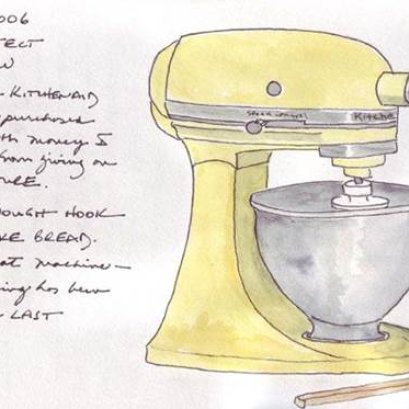 006
TECT
KITCHENAID
purchased
th money I
from giving on
URE.
OUGH HOOK
KE BREAD.
at machine—
ing has been
LAST
Speed control
KITCHE